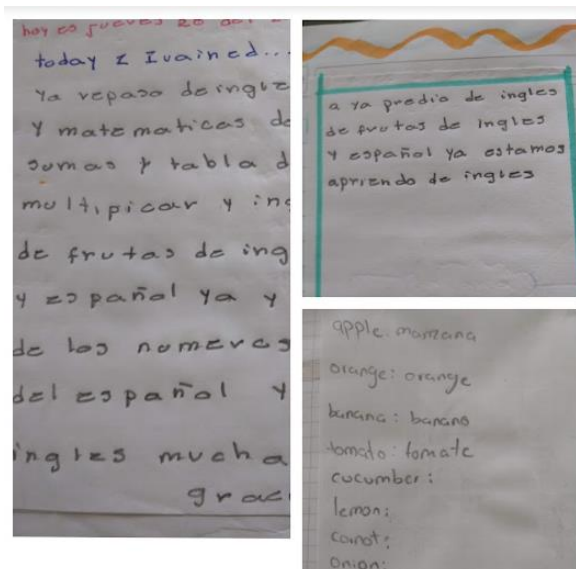 hoy es jueves 20 del
today I Ivained...
Ya repaso de ingle
Y matematicas de
sumas y tabla d
multipicar y ing
de frutas de ing
y español ya y
de los numeros
del español y
ingles mucha
grac
a ya predio de ingles
de frutas de ingles
y español ya estamos
apriendo de ingles
apple. manzana
orange: orange
banana: banano
tomato: tomate
cucumber:
lemon:
carrot:
onion: